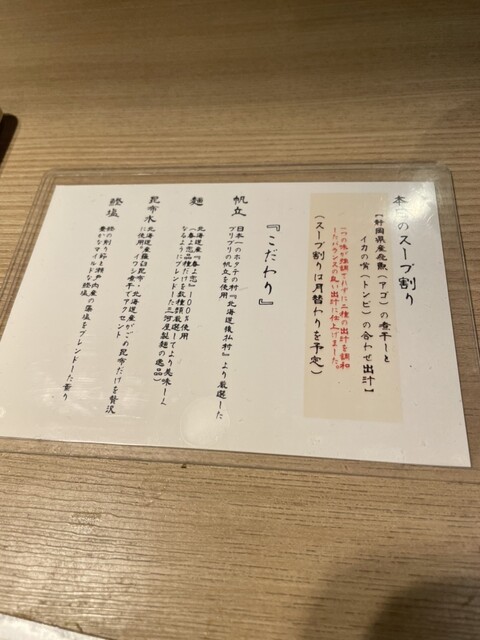 本日のスープ割り
【静岡県産飛魚（アゴ）の煮干しと
イカの嘴（トンビ）の合わせ出汁】
一つの味が強調されずに二種の出汁を調和
したバランスの良い出汁に仕上げました。
（スープ割りは月替わりを予定）
『こだわり』
帆立
日本一のホタテの村『北海道猿払村』より厳選した
プリプリの帆立を使用
麺
北海道産『春よ恋』100%使用
（春よ恋品種だけを数種類厳選してより美味しく
なるようにブレンドした三河屋製麺の逸品）
昆布水
北海道産羅臼昆布・北海道産がごめ昆布だけを贅沢
に使用。イワシ煮干でアクセント
鰹塩
鰹の削り粉と瀬戸内産の藻塩をブレンドした薫り
豊かでマイルドな鰹塩